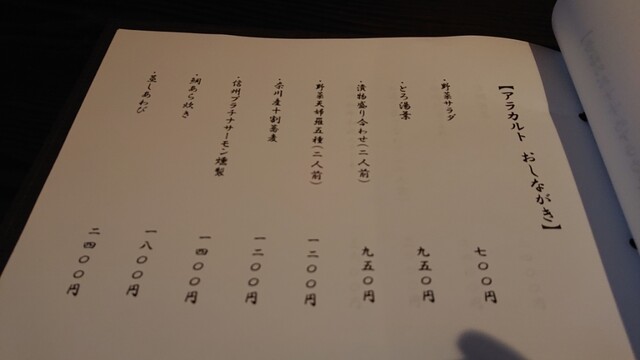 【アラカルト おしながき】
・野菜サラダ 七〇〇円
・とろ湯葉 九五〇円
・漬物盛り合わせ(二人前) 九五〇円
・野菜天婦羅五種(二人前) 一二〇〇円
・奈川産十割蕎麦 一二〇〇円
・信州プラチナサーモン燻製 一四〇〇円
・鯛あら炊き 一八〇〇円
・蒸しあわび 二四〇〇円